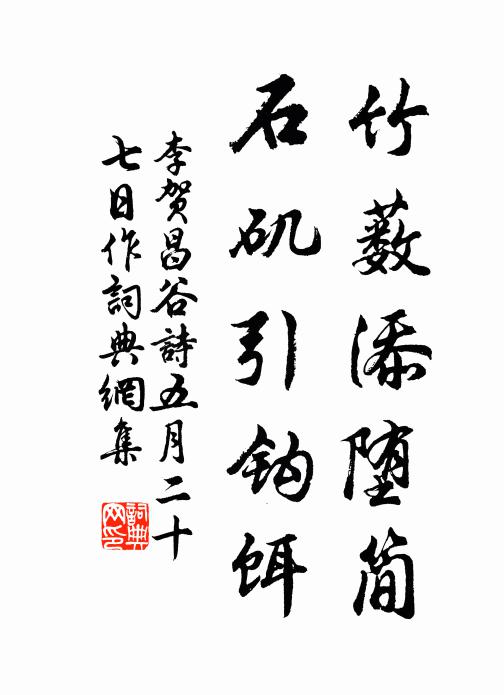 竹薮添堕简
石矶引钩饵
李贺昌谷詩五月二十
七日作詞典網集
詞典
网印